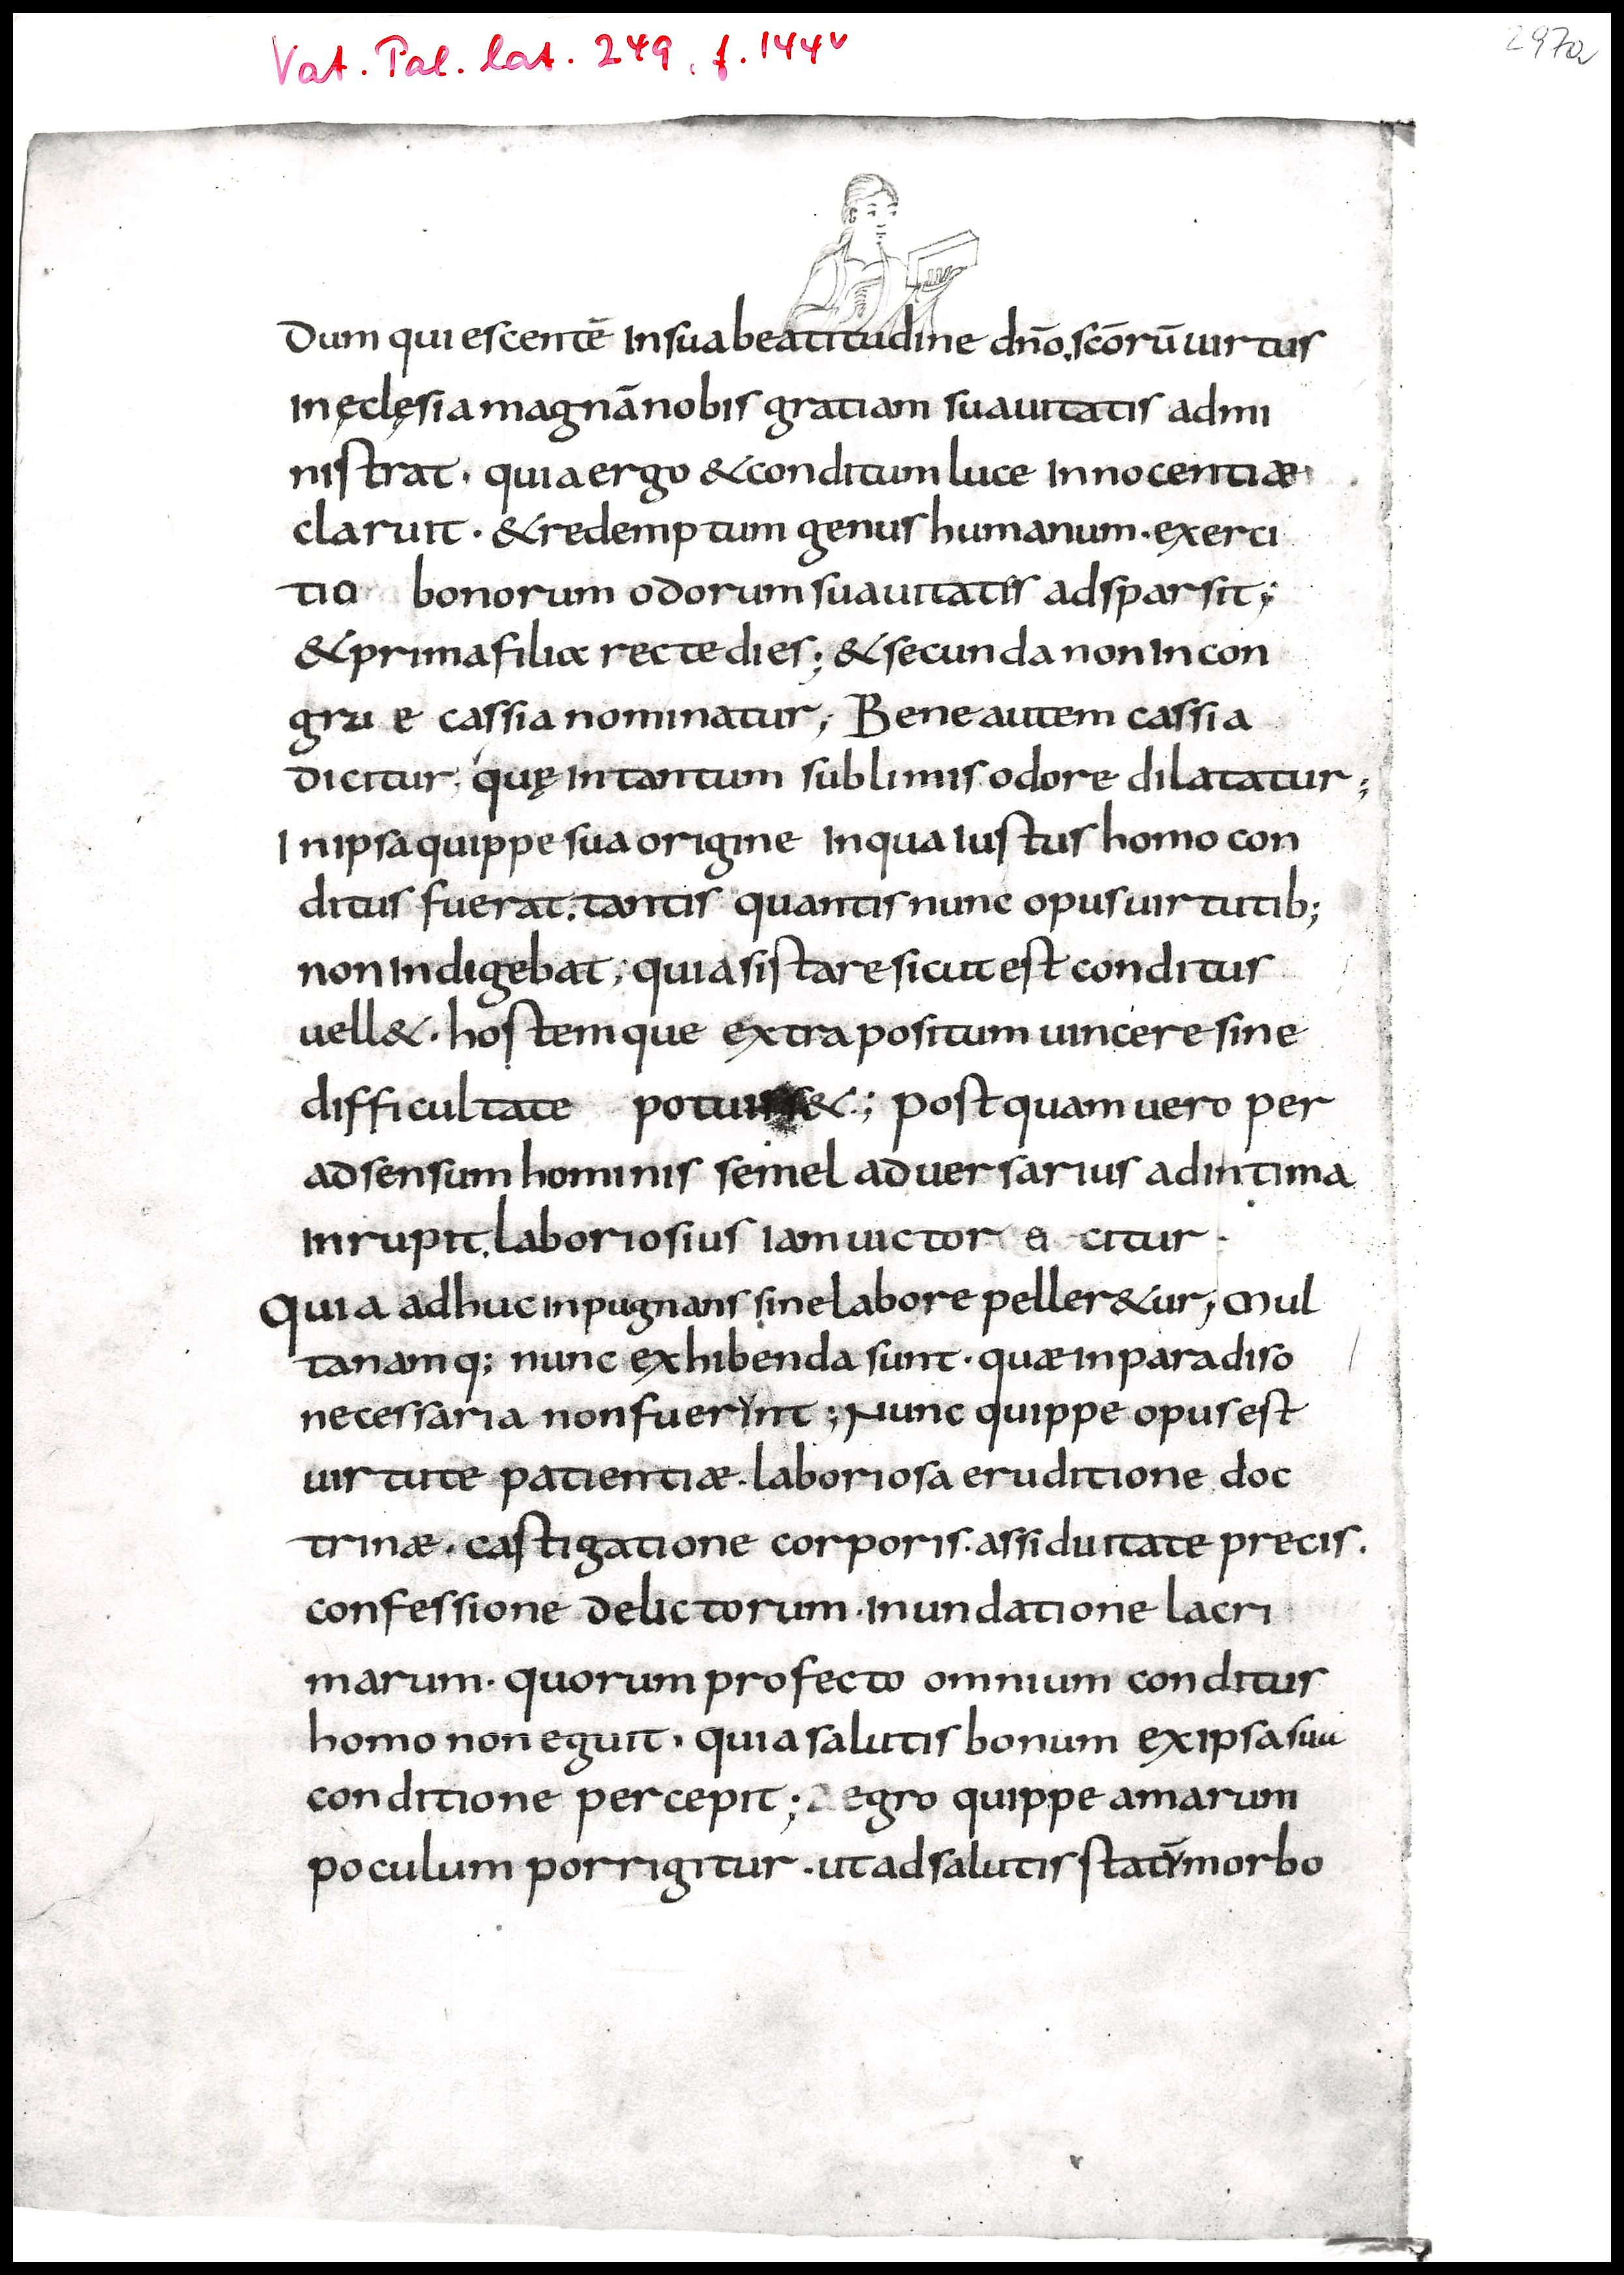 Vat. Pal. lat. 249, f. 144v
297a
Dum quiescentē In sua beatitudine dn̄o. scōrū uirtus
In ęclęsia magnā nobis gratiam suauitatis admi
nistrat · quia ergo & conditum luce Innocentiæ
claruit · & redemptum genus humanum · exerci
tio bonorum odorum suauitatis adsparsit ;
& prima filiæ recte dies ; & secunda non In con
grue cassia nominatur ; Bene autem cassia
dicitur , quę In tantum sublimis odore dilatatur ;
In ipsa quippe sua origine In qua Iustus homo con
ditus fuerat . tantis quantis nunc opus uirtutib;
non Indigebat ; quia si stare sicut est conditus
uell& · hostemque extra positum uincere sine
difficultate potuiss& ; postquam uero per
adsensum hominis semel aduersarius ad intima
Inrupit . laboriosius Iam uictor e citur ·
Quia adhuc inpugnans sine labore peller&ur ; Mul
ta namq; nunc exhibenda sunt · quæ In paradiso
necessaria non fuerunt ; Nunc quippe opus est
uirtute patientiæ · laboriosa eruditione doc
trinæ · castigatione corporis · assiduitate precis .
confessione delictorum · Inundatione lacri
marum · quorum profecto omnium conditus
homo non eguit · quia salutis bonum ex ipsa sua
conditione percepit ; Aegro quippe amarum
poculum porrigitur · ut ad salutis statū morbo